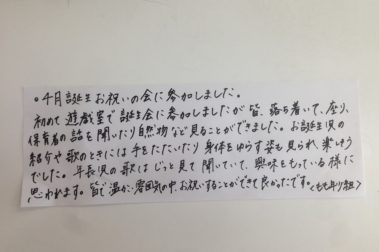 。4月誕生お祝いの会に参加しました。
初めて遊戯室で誕生会に参加しましたが皆、落ち着いて、座り、
保育者の話を聞いたり自然物など見ることができました。お誕生児の
紹介や歌のときには手をたたいたり身体をゆらす姿も見られ、楽しそう
でした。年長児の歌はじっと見て聞いていて、興味をもっている様に
思われます。皆で温かい雰囲気の中、お祝いすることができて良かったです。